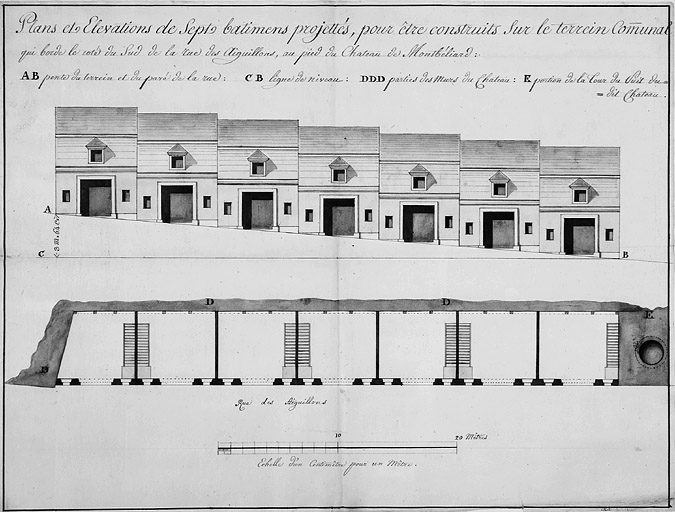 Plans et Elevations de Sept batimens projettés, pour être construits Sur le terrein Comunal
qui borde le coté du Sud de la rue des Aiguillons, au pied du Chateau de Montbéliard:
AB pente du terrein et du pavé de la rue: CB ligne de niveau: DDD parties des Murs du Chateau: E portion de la Cour du Puit du=
=dit Chateau.
A
C
B
D
D
E
D
Rue des Aiguillons
10
20 Mètres
Echelle d'un Centimètre pour un Mètre.